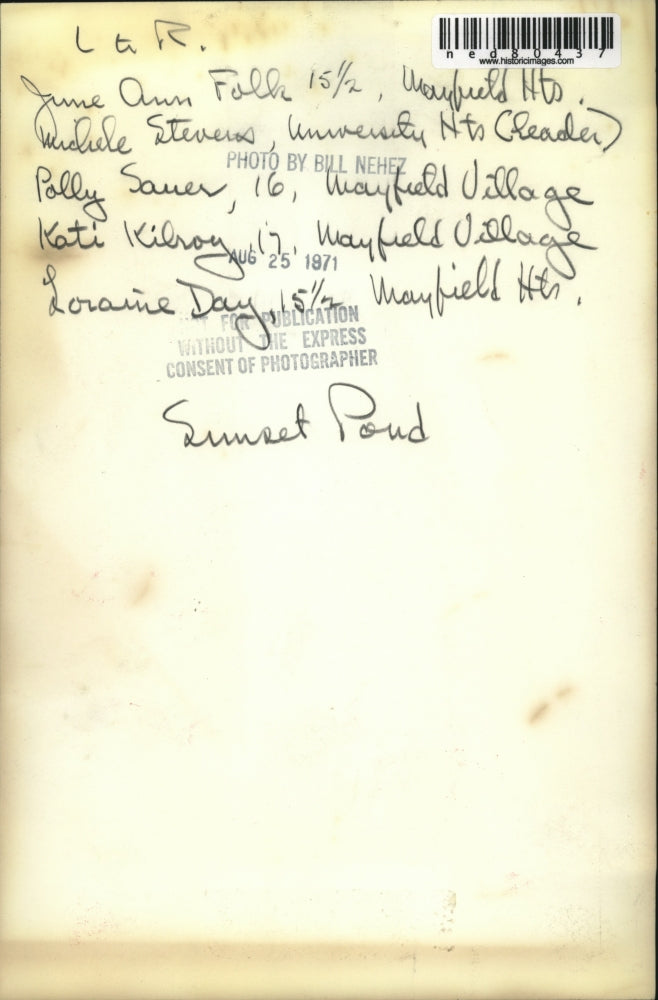 ned80437
www.historicimages.com
L to R.
June Ann Folk 15 1/2, Mayfield Hts.
Michele Stevens, University Hts (leader)
PHOTO BY BILL NEHEZ
Polly Sauer, 16, Mayfield Village
Kati Kilroy, 17, Mayfield Village
AUG 25 1971
Loraine Day, 15 1/2 Mayfield Hts.
NOT FOR PUBLICATION
WITHOUT THE EXPRESS
CONSENT OF PHOTOGRAPHER
Sunset Pond